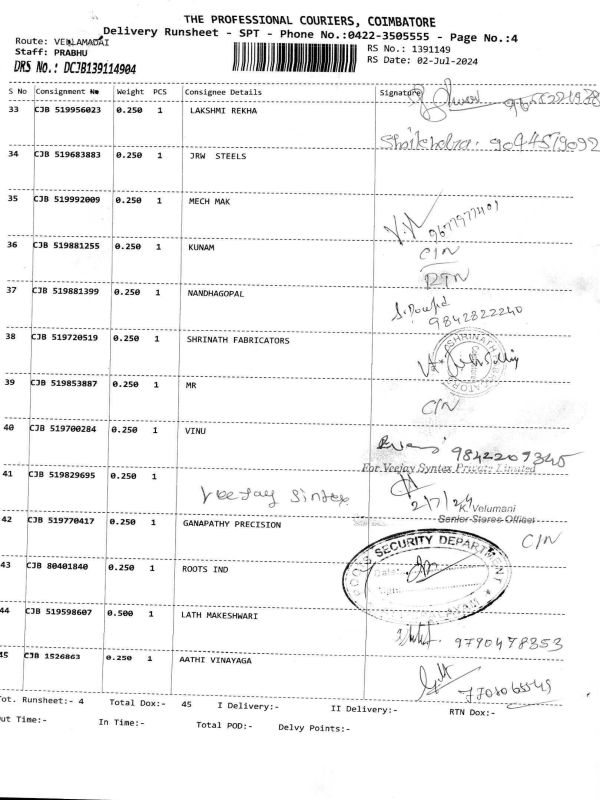 THE PROFESSIONAL COURIERS, COIMBATORE
Delivery Runsheet - SPT - Phone No.:0422-3505555 - Page No.:4
Route: VELLAMADAI
Staff: PRABHU
RS No.: 1391149
DRS No.: DCJB139114904
RS Date: 02-Jul-2024
S No Consignment No Weight PCS Consignee Details Signature
33 CJB 519956023 0.250 1 LAKSHMI REKHA
9094519092
34 CJB 519683883 0.250 1 JRW STEELS
35 CJB 519992009 0.250 1 MECH MAK
9677977401
36 CJB 519881255 0.250 1 KUNAM C/N
RTN
37 CJB 519881399 0.250 1 NANDHAGOPAL
9842822240
38 CJB 519720519 0.250 1 SHRINATH FABRICATORS
SHRINATH FABRICATORS
39 CJB 519853887 0.250 1 MR
C/N
40 CJB 519700284 0.250 1 VINU
9842209340
For Veejay Syntex Private Limited
41 CJB 519829695 0.250 1 Veejay Sintex
2/7/24
K. Velumani
Senior Stores Officer
42 CJB 519770417 0.250 1 GANAPATHY PRECISION C/N
SECURITY DEPARTMENT
43 CJB 80401840 0.250 1 ROOTS IND
44 CJB 519598607 0.500 1 LATH MAKESHWARI
9790478353
45 CJB 1526863 0.250 1 AATHI VINAYAGA
Tot. Runsheet:- 4 Total Dox:- 45 I Delivery:- II Delivery:- RTN Dox:-
Out Time:- In Time:- Total POD:- Delvy Points:-